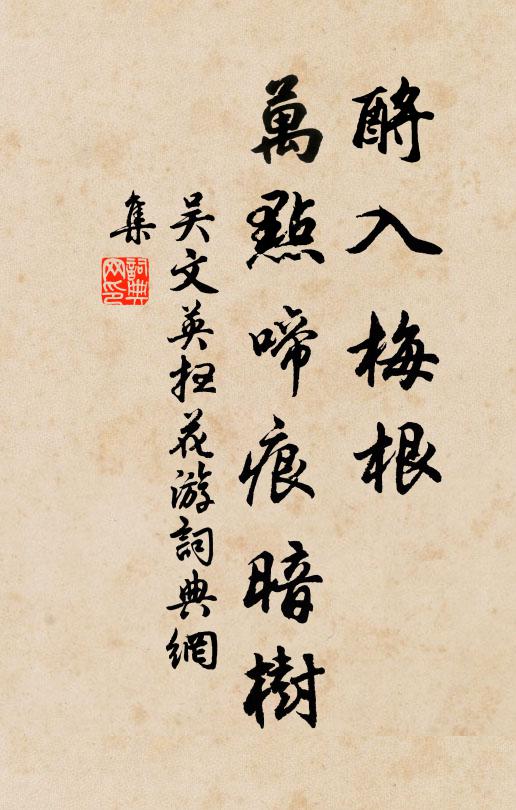 酹入梅根
萬點啼痕暗樹
吴文英扫花游詞典網
集
詞典
网印